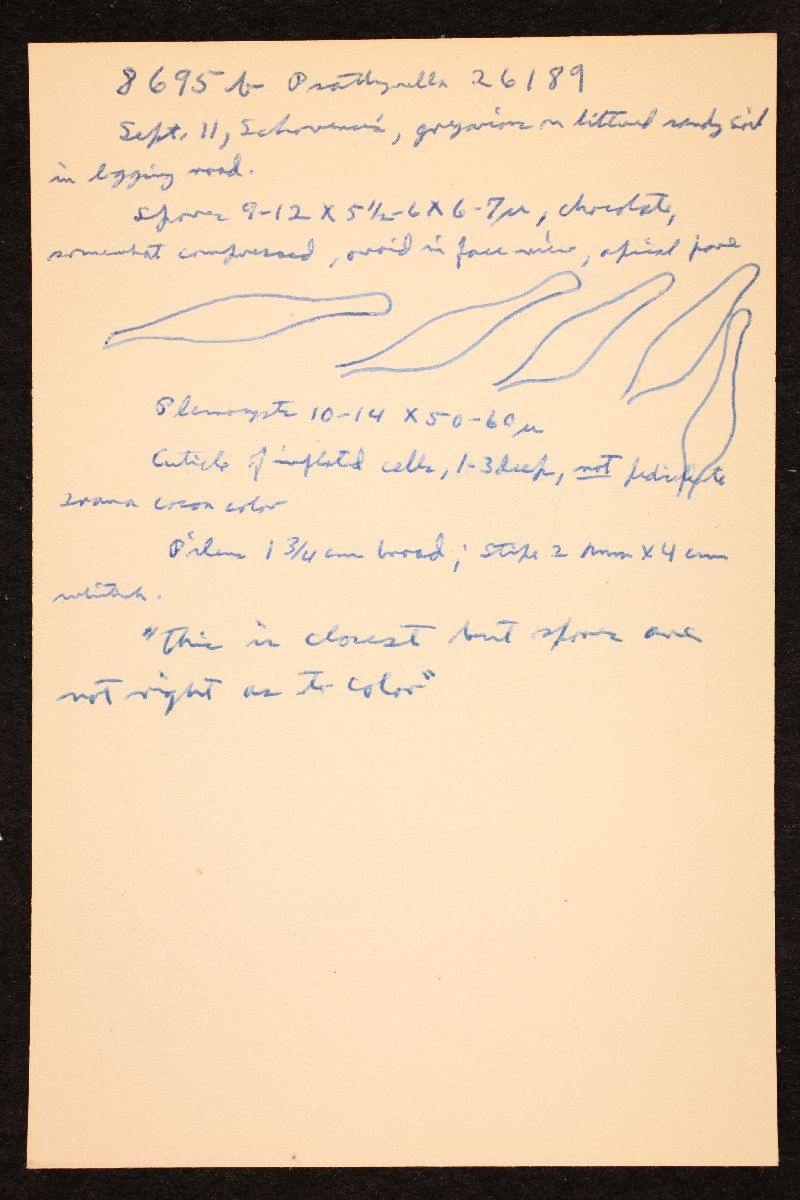 8695 b Psathyrella 26189
Sept. 11, Schoverens, gregarious on littered sandy soil
in logging road.
Spores 9-12 X 5½-6 X 6-7µ, chocolate,
somewhat compressed, ovoid in face view, apical pore
Pleurocysts 10-14 X 50-60µ
Cuticle of inflated cells, 1-3 deep, not pedicellate
cocoa color
Pileus 1 3/4 cm broad; stipe 2 mm X 4 cm
whitish.
"This is closest but spores are
not right as to color"